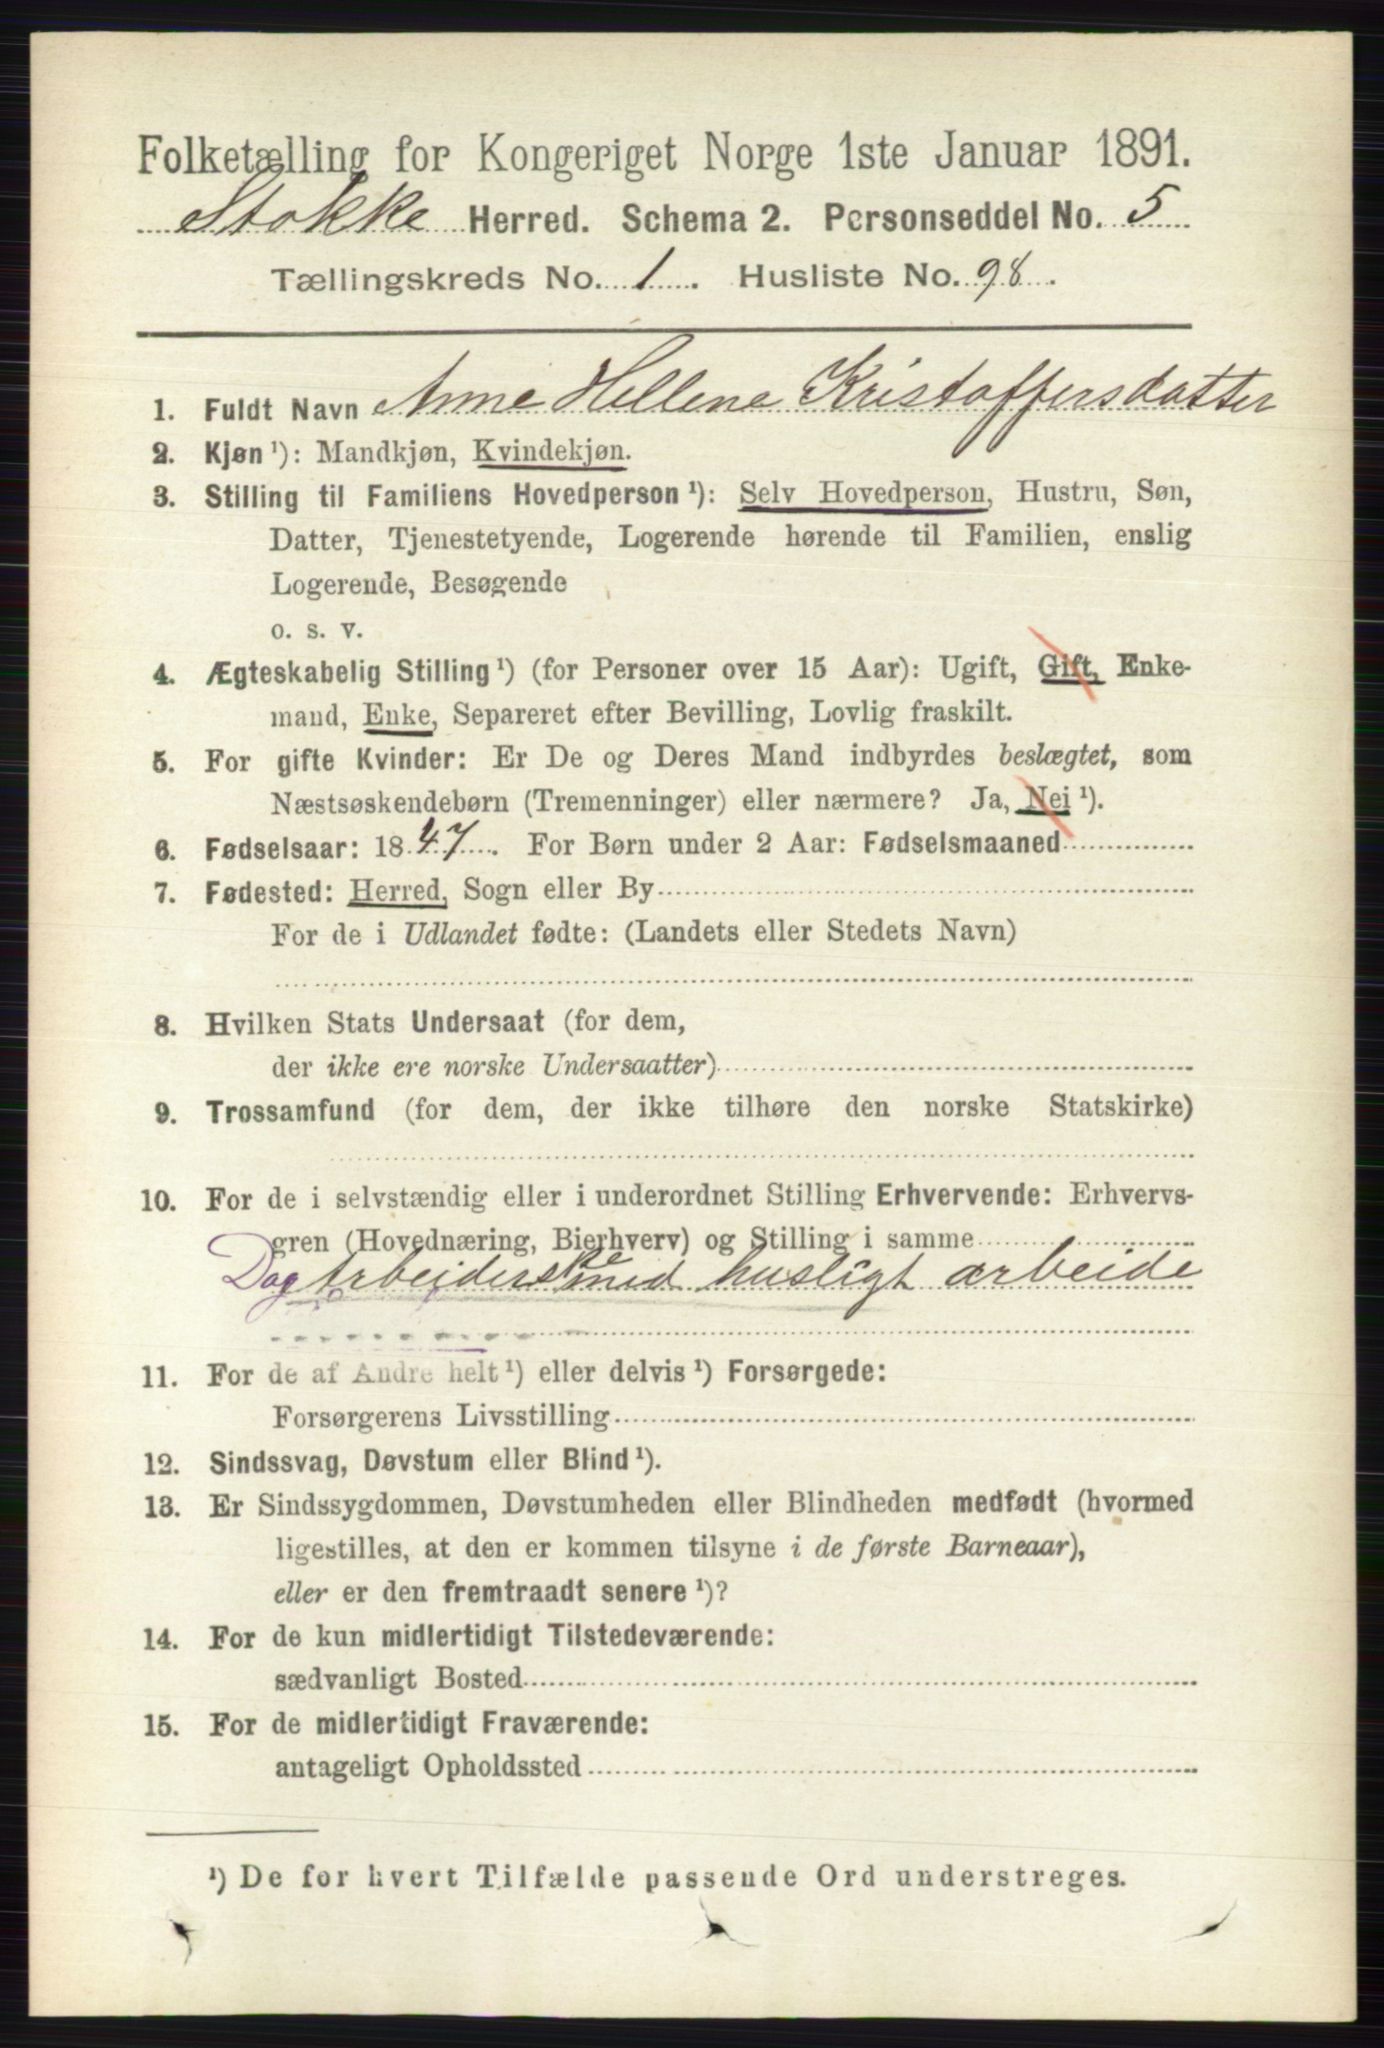 Folketælling for Kongeriget Norge 1ste Januar 1891.
Stokke Herred. Schema 2. Personseddel No. 5
Tællingskreds No. 1. Husliste No. 98.
1. Fuldt Navn Anne Hellene Kristoffersdatter
2. Kjøn ¹): Mandkjøn, Kvindekjøn.
3. Stilling til Familiens Hovedperson ¹): Selv Hovedperson, Hustru, Søn,
Datter, Tjenestetyende, Logerende hørende til Familien, enslig
Logerende, Besøgende
o. s. v.
4. Ægteskabelig Stilling ¹) (for Personer over 15 Aar): Ugift, Gift, Enke-
mand, Enke, Separeret efter Bevilling, Lovlig fraskilt.
5. For gifte Kvinder: Er De og Deres Mand indbyrdes beslægtet, som
Næstsøskendebørn (Tremenninger) eller nærmere? Ja, Nei ¹).
6. Fødselsaar: 1847. For Børn under 2 Aar: Fødselsmaaned
7. Fødested: Herred, Sogn eller By
For de i Udlandet fødte: (Landets eller Stedets Navn)
8. Hvilken Stats Undersaat (for dem,
der ikke ere norske Undersaatter)
9. Trossamfund (for dem, der ikke tilhøre den norske Statskirke)
10. For de i selvstændig eller i underordnet Stilling Erhvervende: Erhvervs-
gren (Hovednæring, Bierhverv) og Stilling i samme
Dagarbeiderske med husligt arbeide
11. For de af Andre helt ¹) eller delvis ¹) Forsørgede:
Forsørgerens Livsstilling
12. Sindssvag, Døvstum eller Blind ¹).
13. Er Sindssygdommen, Døvstumheden eller Blindheden medfødt (hvormed
ligestilles, at den er kommen tilsyne i de første Barneaar),
eller er den fremtraadt senere ¹)?
14. For de kun midlertidigt Tilstedeværende:
sædvanligt Bosted
15. For de midlertidigt Fraværende:
antageligt Opholdssted
¹) De for hvert Tilfælde passende Ord understreges.